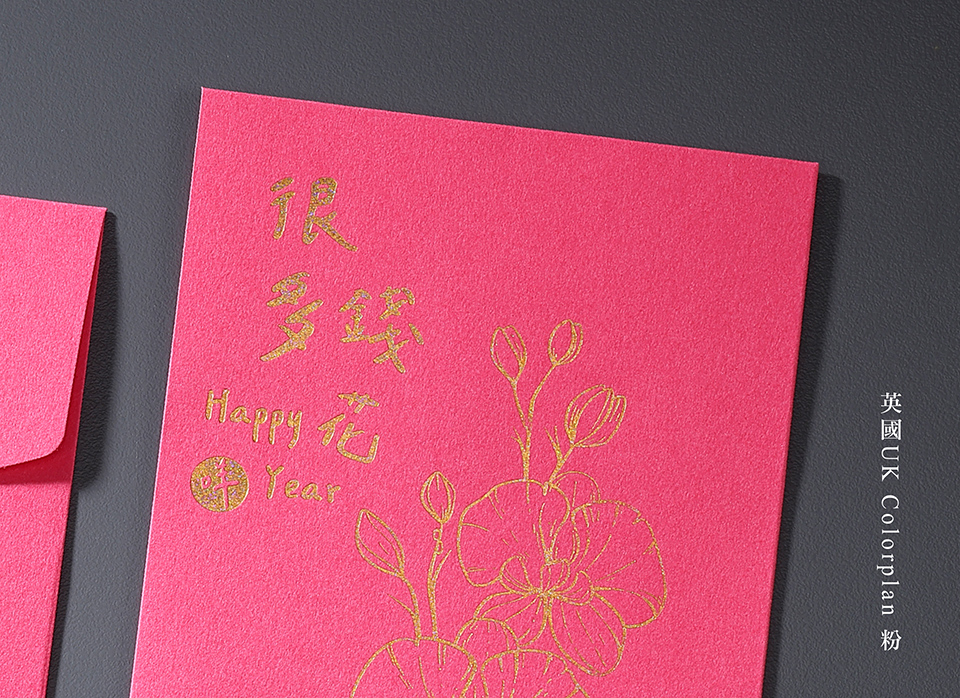 很
多錢
Happy 花
叶 Year
英國UK Colorplan 粉